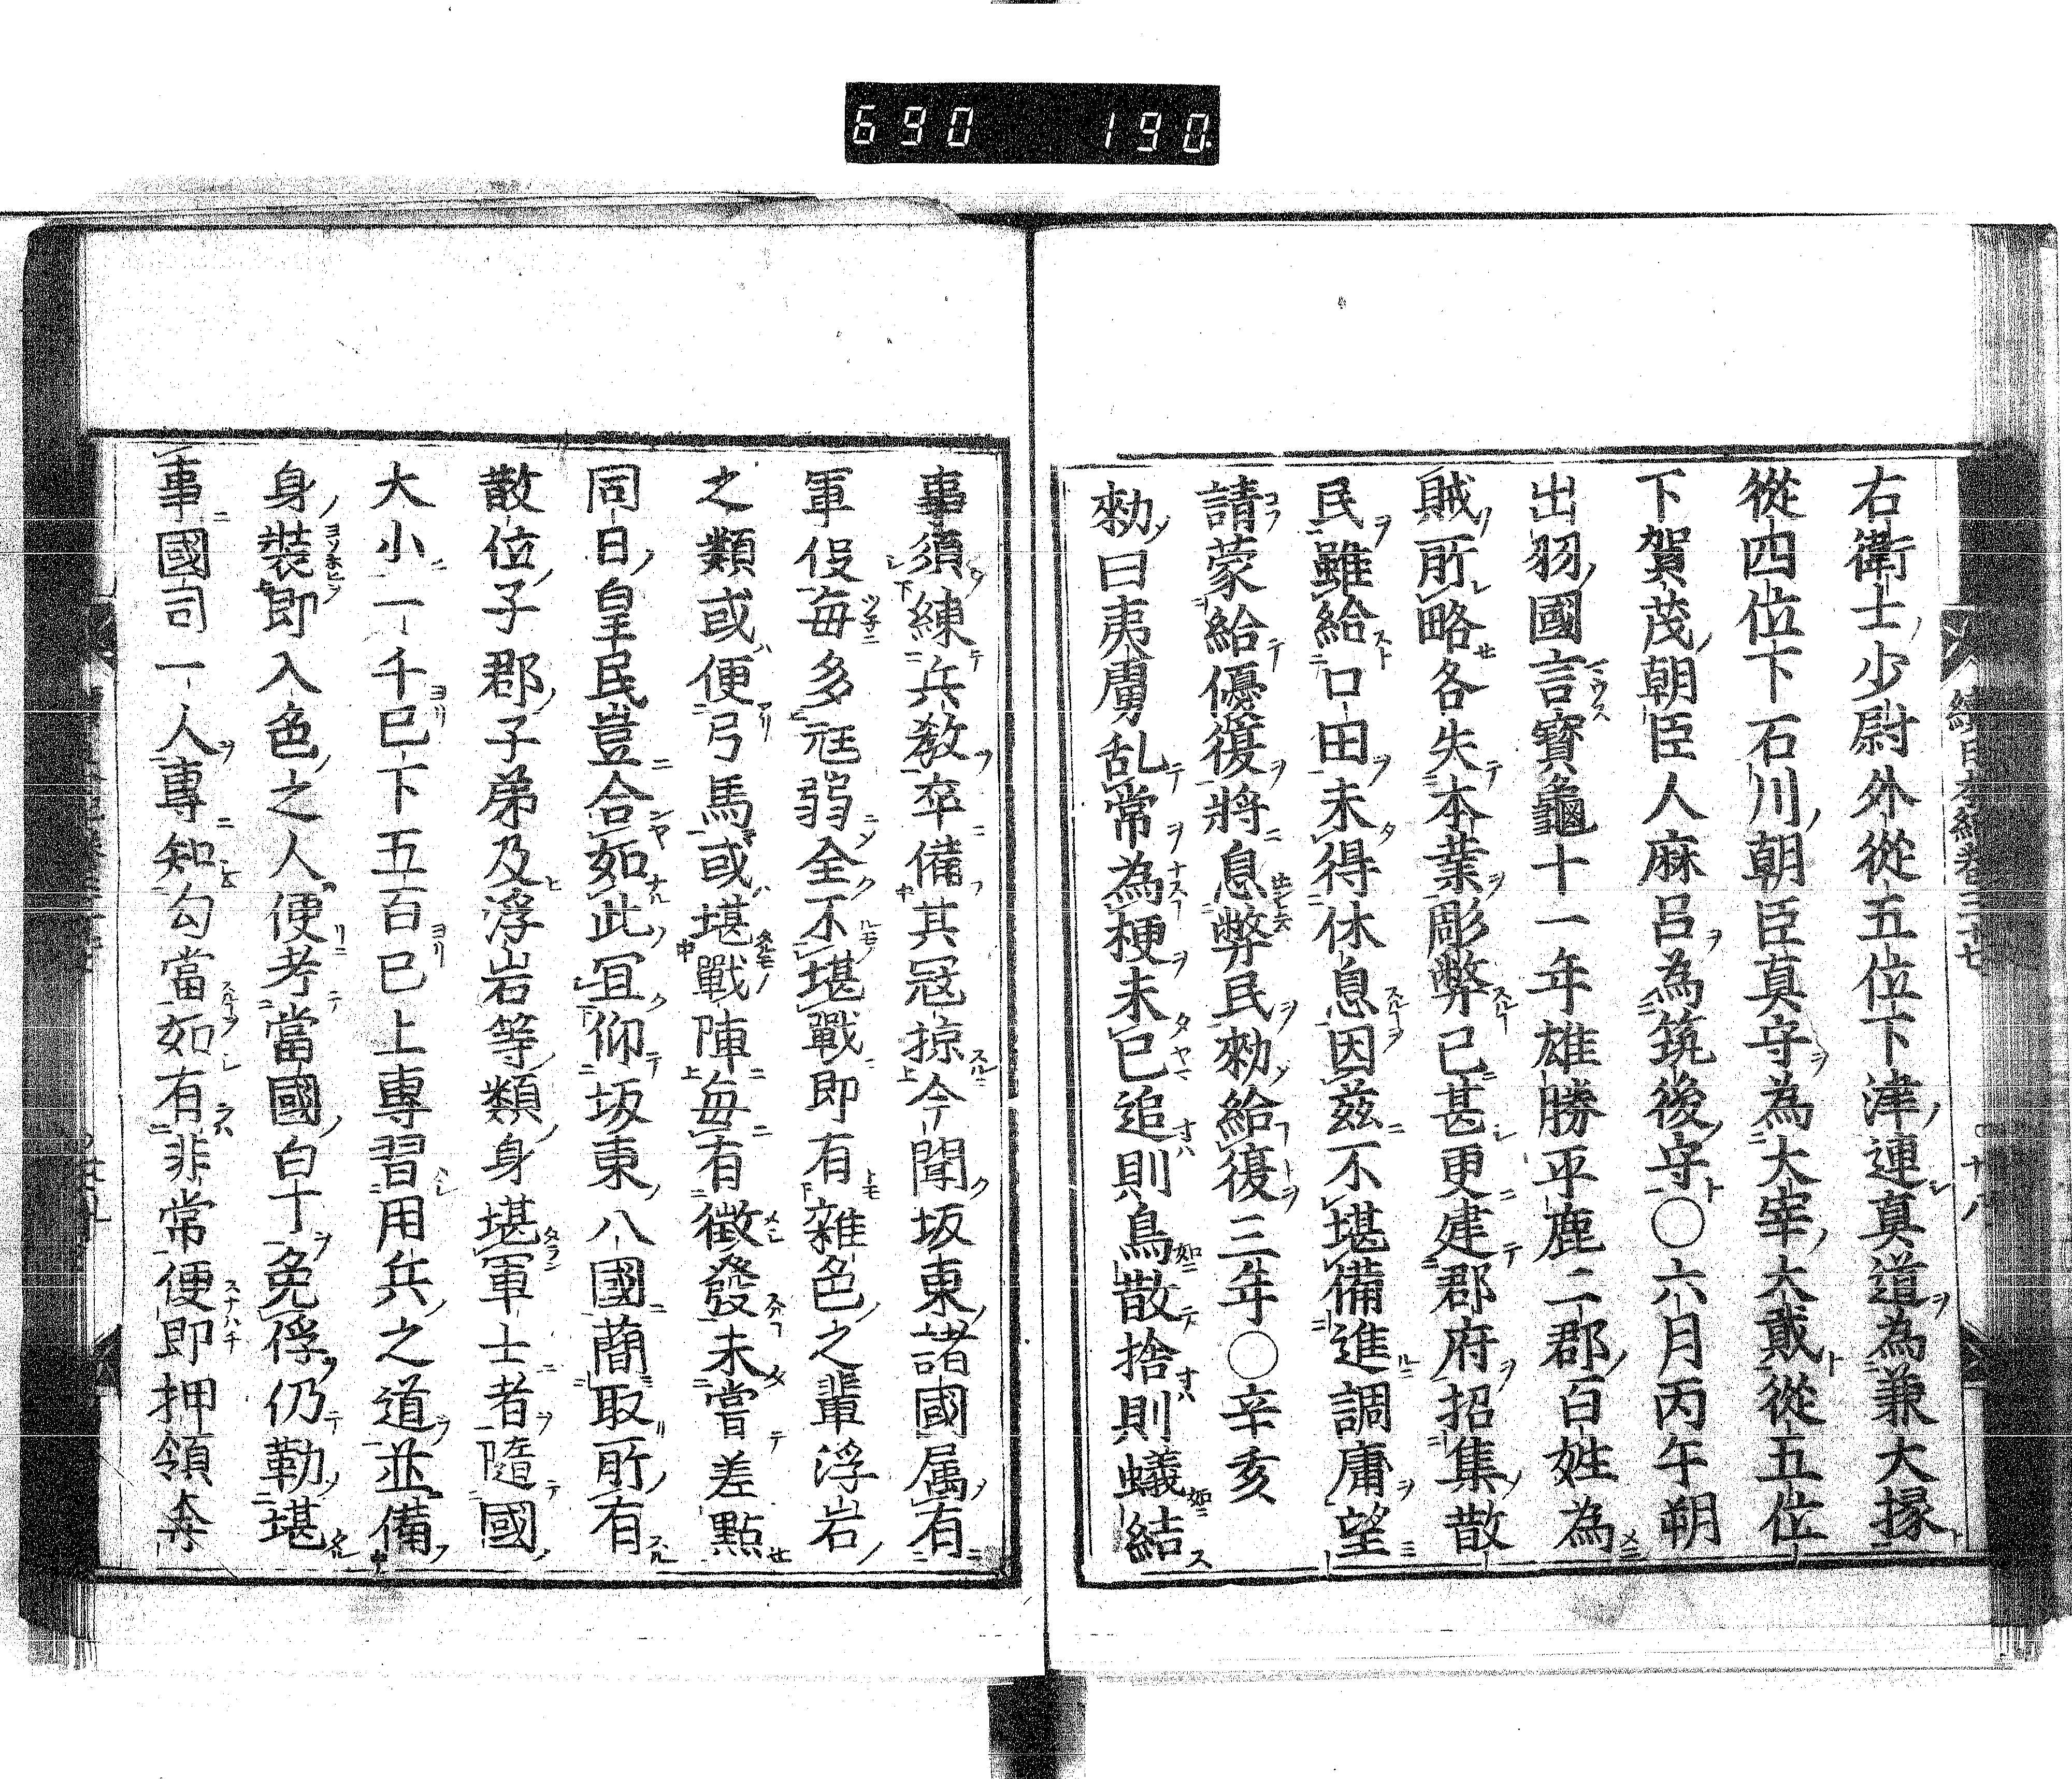 690 190
右衛士少尉外從五位下津連真道為兼大掾
從四位下石川朝臣真守為大宰大貳從五位
下賀茂朝臣人麻呂為筑後守〇六月丙午朔
出羽國言寶龜十一年雄勝平鹿二郡百姓為
賊所略各失本業彫弊已甚更建郡府招集散
民雖給口田未得休息因茲不堪備進調庸望
請蒙給優復將息弊民勑給復三年〇辛亥
勑曰夷虜乱常為梗未已追則鳥散捨則蟻結
事須練兵教卒備其寇掠今聞坂東諸國属有
軍伇每多尫弱全不堪戰即有雜色之輩浮宕
之類或便弓馬或堪戰陣每有徵發未嘗差點
同日皇民豈合如此冝仰坂東八國蕳取所有
散位子郡子弟及浮宕等類身堪軍士者隨國
大小一千已下五百已上專習用兵之道並備
身裝即入色之人便考當國白丁免徭仍勒堪
事國司一人專知勾當如有非常便即押領奔